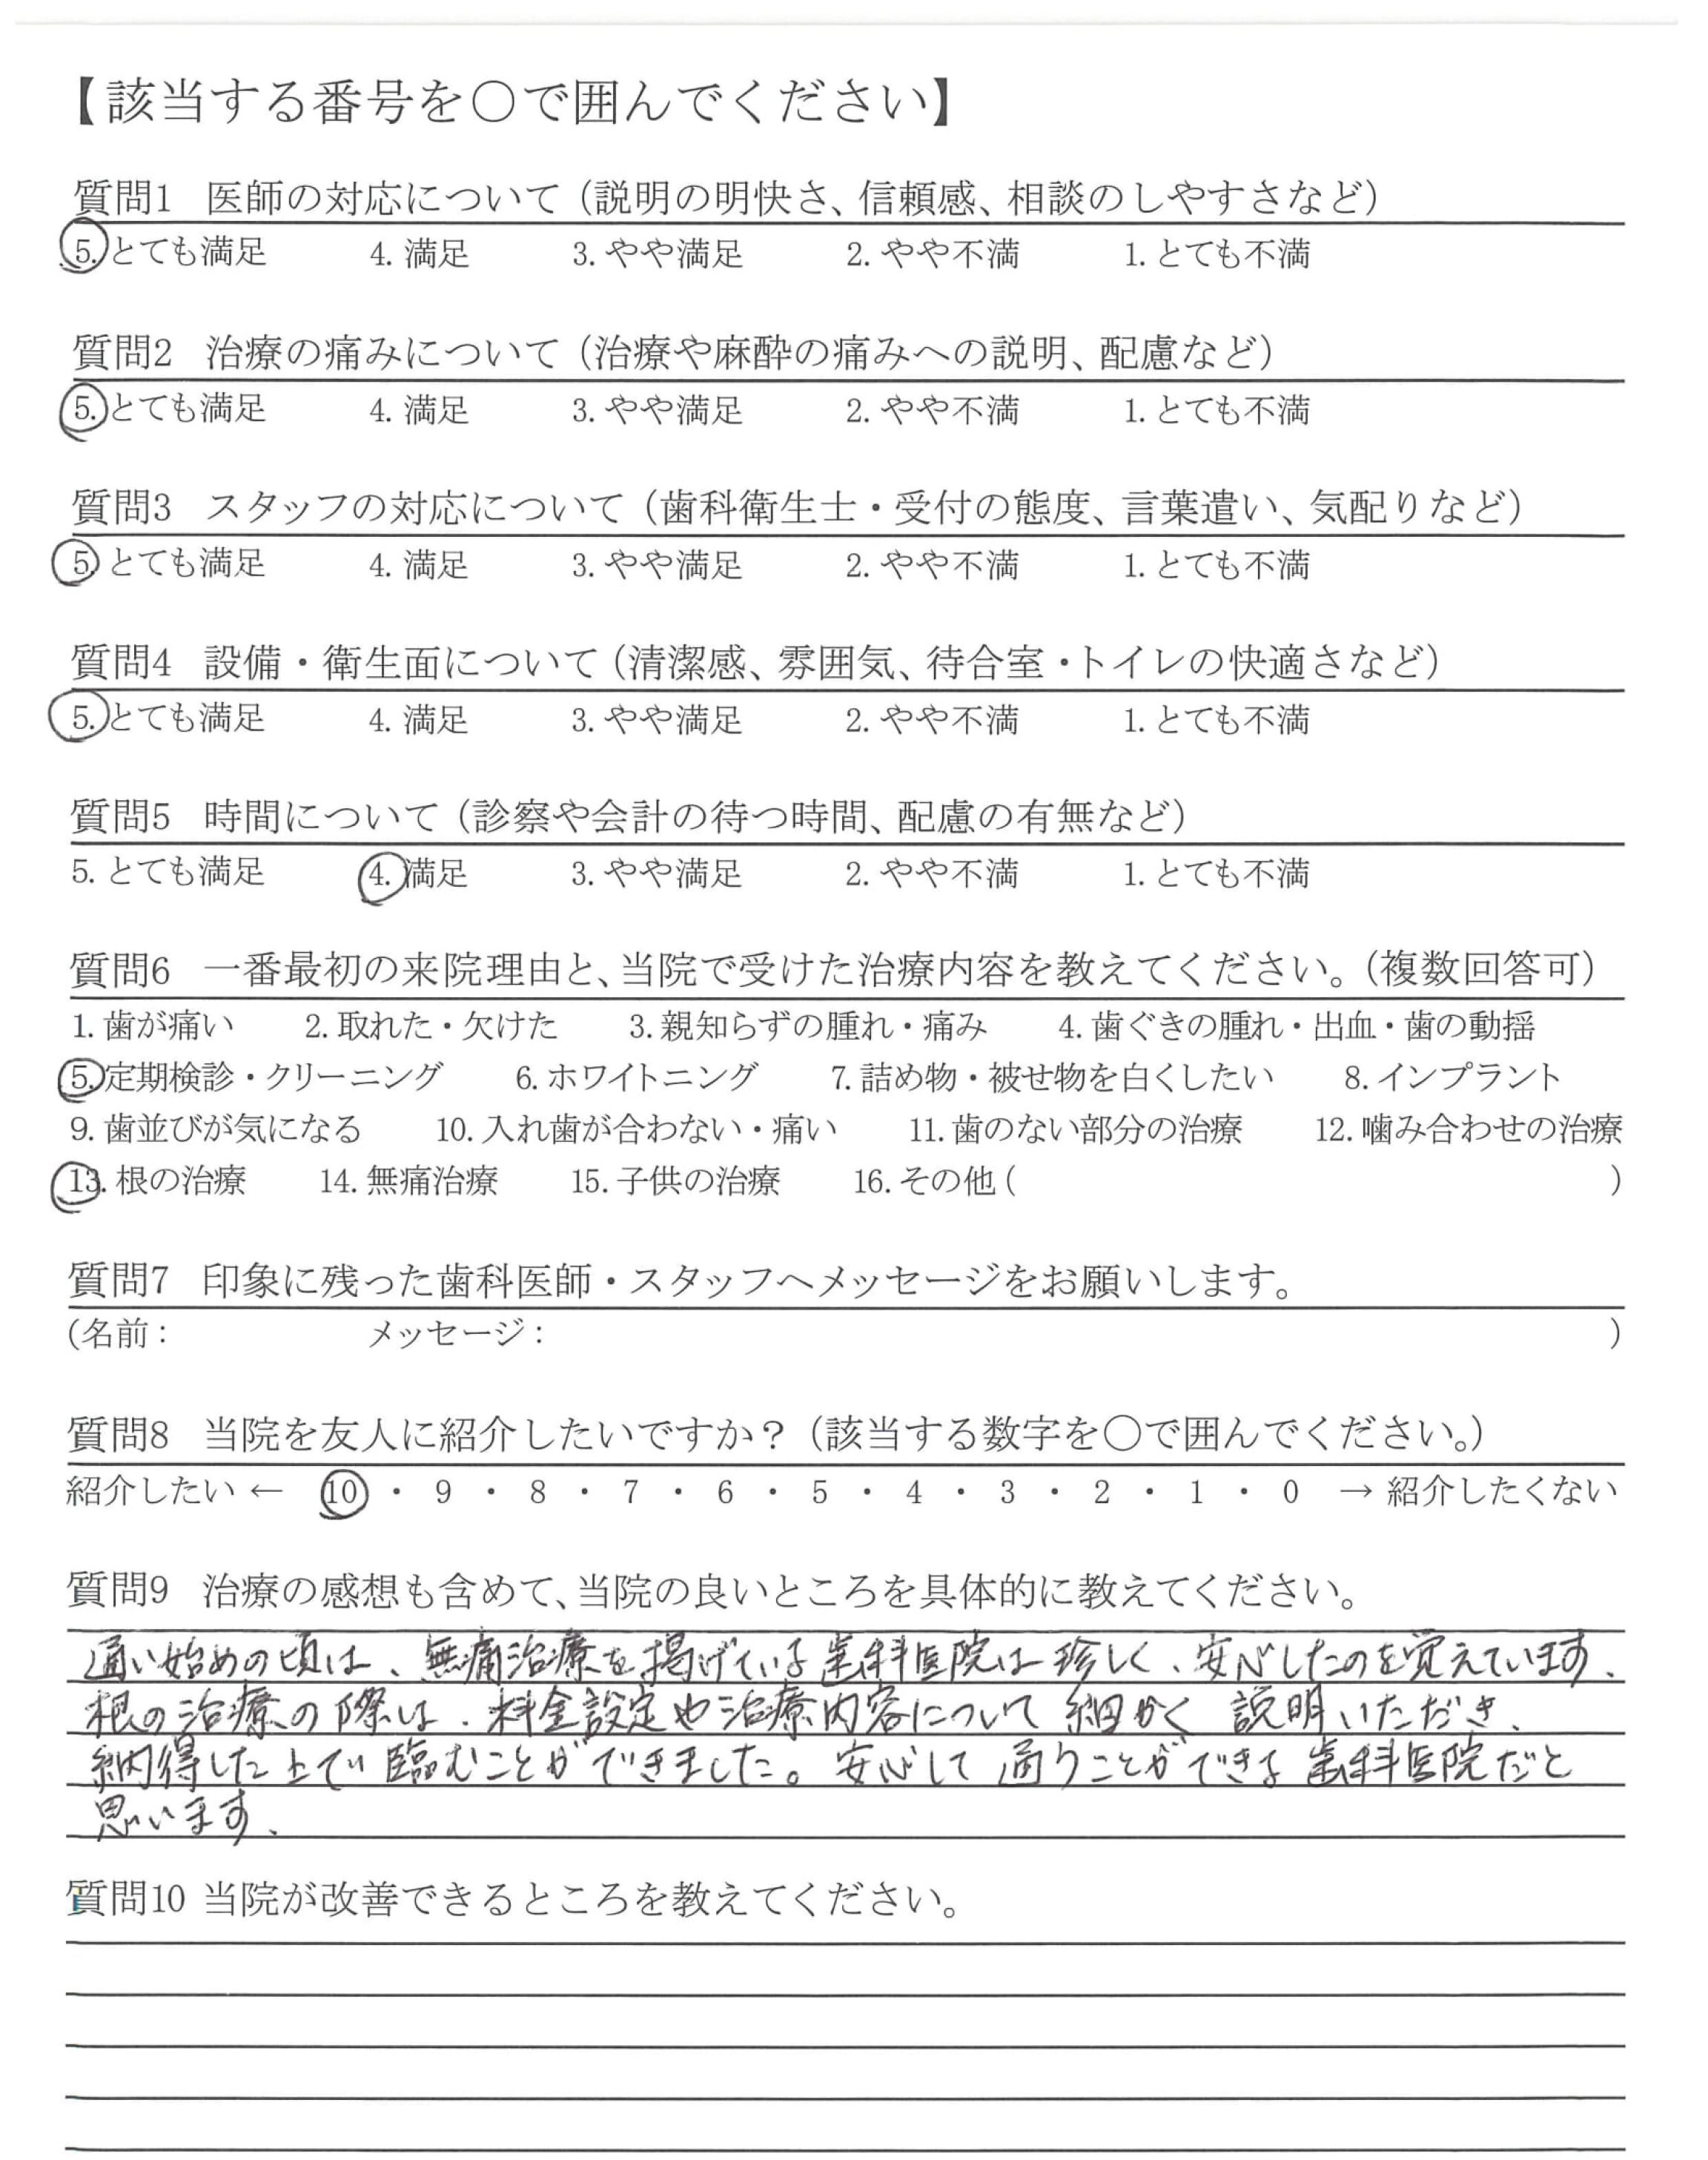 【該当する番号を〇で囲んでください】
質問1 医師の対応について（説明の明快さ、信頼感、相談のしやすさなど）
5. とても満足 4. 満足 3. やや満足 2. やや不満 1. とても不満
質問2 治療の痛みについて（治療や麻酔の痛みへの説明、配慮など）
5. とても満足 4. 満足 3. やや満足 2. やや不満 1. とても不満
質問3 スタッフの対応について（歯科衛生士・受付の態度、言葉遣い、気配りなど）
5. とても満足 4. 満足 3. やや満足 2. やや不満 1. とても不満
質問4 設備・衛生面について（清潔感、雰囲気、待合室・トイレの快適さなど）
5. とても満足 4. 満足 3. やや満足 2. やや不満 1. とても不満
質問5 時間について（診察や会計の待つ時間、配慮の有無など）
5. とても満足 4. 満足 3. やや満足 2. やや不満 1. とても不満
質問6 一番最初の来院理由と、当院で受けた治療内容を教えてください。（複数回答可）
1. 歯が痛い 2. 取れた・欠けた 3. 親知らずの腫れ・痛み 4. 歯ぐきの腫れ・出血・歯の動揺
5. 定期検診・クリーニング 6. ホワイトニング 7. 詰め物・被せ物を白くしたい 8. インプラント
9. 歯並びが気になる 10. 入れ歯が合わない・痛い 11. 歯のない部分の治療 12. 噛み合わせの治療
13. 根の治療 14. 無痛治療 15. 子供の治療 16. その他（ ）
質問7 印象に残った歯科医師・スタッフへメッセージをお願いします。
（名前： メッセージ： ）
質問8 当院を友人に紹介したいですか？（該当する数字を〇で囲んでください。）
紹介したい ← 10 ・ 9 ・ 8 ・ 7 ・ 6 ・ 5 ・ 4 ・ 3 ・ 2 ・ 1 ・ 0 → 紹介したくない
質問9 治療の感想も含めて、当院の良いところを具体的に教えてください。
通い始めの頃は、無痛治療を掲げている歯科医院は珍しく、安心したのを覚えています、
根の治療の際は、料金設定や治療内容について細かく説明いただき、
納得した上で臨むことができました。安心して通うことができる歯科医院だと
思います、
質問10 当院が改善できるところを教えてください。